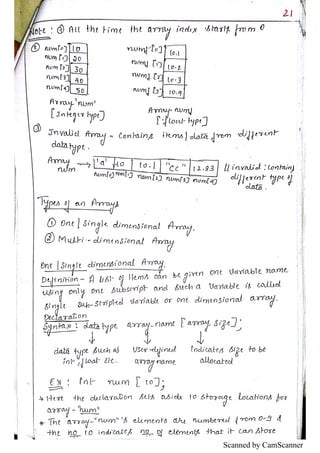 21
Note : ① All the time the array index starts from 0
② num[0] 10
num[1] 20
num[2] 30
num[3] 40
num[4] 50
Array 'num'
[Integer type]
numf[0] 10.1
numf[1] 10.2
numf[2] 10.3
numf[3] 10.4
Array numf
[float type]
③ Invalid Array - Contains items | data from different
datatype.
Array num → 'a' 10 10.1 "cc" 12.83 // invalid : contains
num[0] num[1] num[2] num[3] num[4] different type of
data.
Types of an Arrays
① One | Single dimensional Array.
② Multi - dimensional Array
One | Single dimensional Array.
Definition - A list of items can be given one variable name
using only one subscript and such a variable is called
single sub-scripted variable or one dimensional array.
Declaration
Syntax : datatype array-name [array size];
↓ ↓ ↓
data type such as User-defined Indicates size to be
int, float etc. array name allocated
Ex : int num [10];
Here the declaration sets aside 10 storage locations for
array - "num"
* The array-"num"'s elements are numbered from 0-9 &
the no. 10 indicates no. of elements that it can store
Scanned by CamScanner